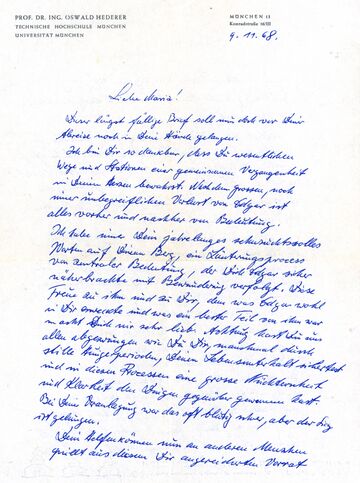 PROF. DR. ING. OSWALD HEDERER
TECHNISCHE HOCHSCHULE MÜNCHEN
UNIVERSITÄT MÜNCHEN
MÜNCHEN 13
Konradstraße 16/III
9.11.68.
Liebe Maria!
Dieser längst fällige Brief soll nun doch vor Deiner
Abreise noch in Deine Hände gelangen.
Ich bin Dir so dankbar, dass Du wesentlichen
Wege und Stationen einer gemeinsamen Vergangenheit
in Deinem Herzen bewahrst. Nach dem grossen, noch
immer unbegreiflichen Verlust von Edgar ist
alles vorher und nachher von Bedeutung.
Ich habe nun Dein jahrelanges sehnsuchtsvolles
Warten auf Deinem Berg, ein Läuterungsprocess
von zentraler Bedeutung, der Dich Edgar sicher
näherbrachte mit Bewunderung verfolgt. Diese
Treue zu ihm und zu Dir, denn was Edgar wohl
in Dir erweckte und was ein bester Teil von ihm war
macht Dich mir sehr lieb. Achtung hast Du uns
allen abgezwungen wie Du Dir, manchmal durch
stille Hungerperioden, Deinen Lebensunterhalt sichertest
und in diesen Prozessen eine grosse Nüchternheit
und Klarheit den Dingen gegenüber gewonnen hast.
Bei Deiner Veranlagung war das oft blutig schwer, aber der Sieg
ist gelungen.
Dein Helfenkönnen nun an anderen Menschen
quillt aus diesem Dir angereicherten Vorrat